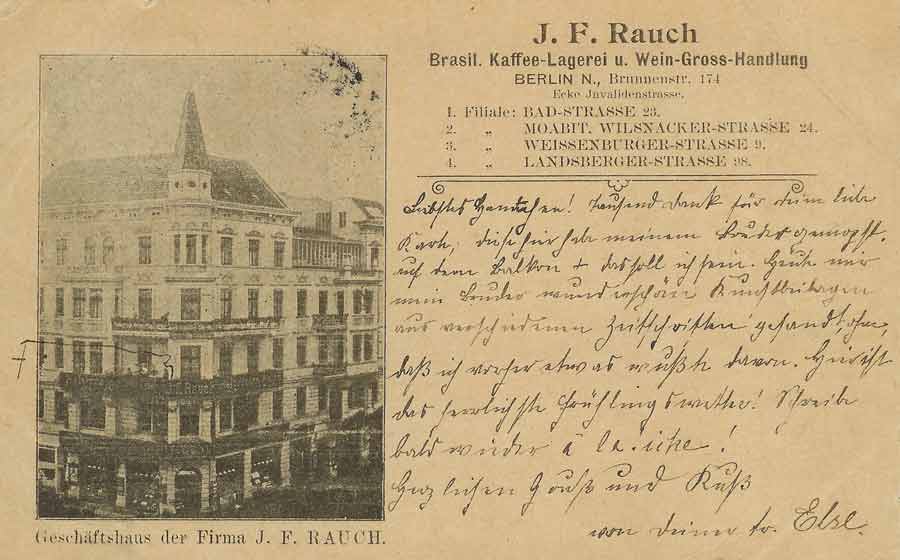 J. F. Rauch
Brasil. Kaffee-Lagerei u. Wein-Gross-Handlung
BERLIN N., Brunnenstr. 174
Ecke Jnvalidenstrasse.
1. Filiale: BAD-STRASSE 23.
2. „ MOABIT. WILSNACKER-STRASSE 24.
3. „ WEISSENBURGER-STRASSE 9.
4. „ LANDSBERGER-STRASSE 98.
Liebstes! Tausend Dank für deine liebe
Karte, diese hier habe meinem Bruder gemopst.
auf dem Balkon + das soll ich sein. Heute mir
mein Bruder wunderschöne Kunstbeilagen
aus verschiedenen Zeitschriften gesandt, ohne
daß ich vorher etwas wußte davon. Hier ist
das herrlichste Frühlingswetter! Schreibe
bald wieder à la
Herzlichen Gruß und Kuß
von deiner tr. Else.
Geschäftshaus der Firma J. F. RAUCH.